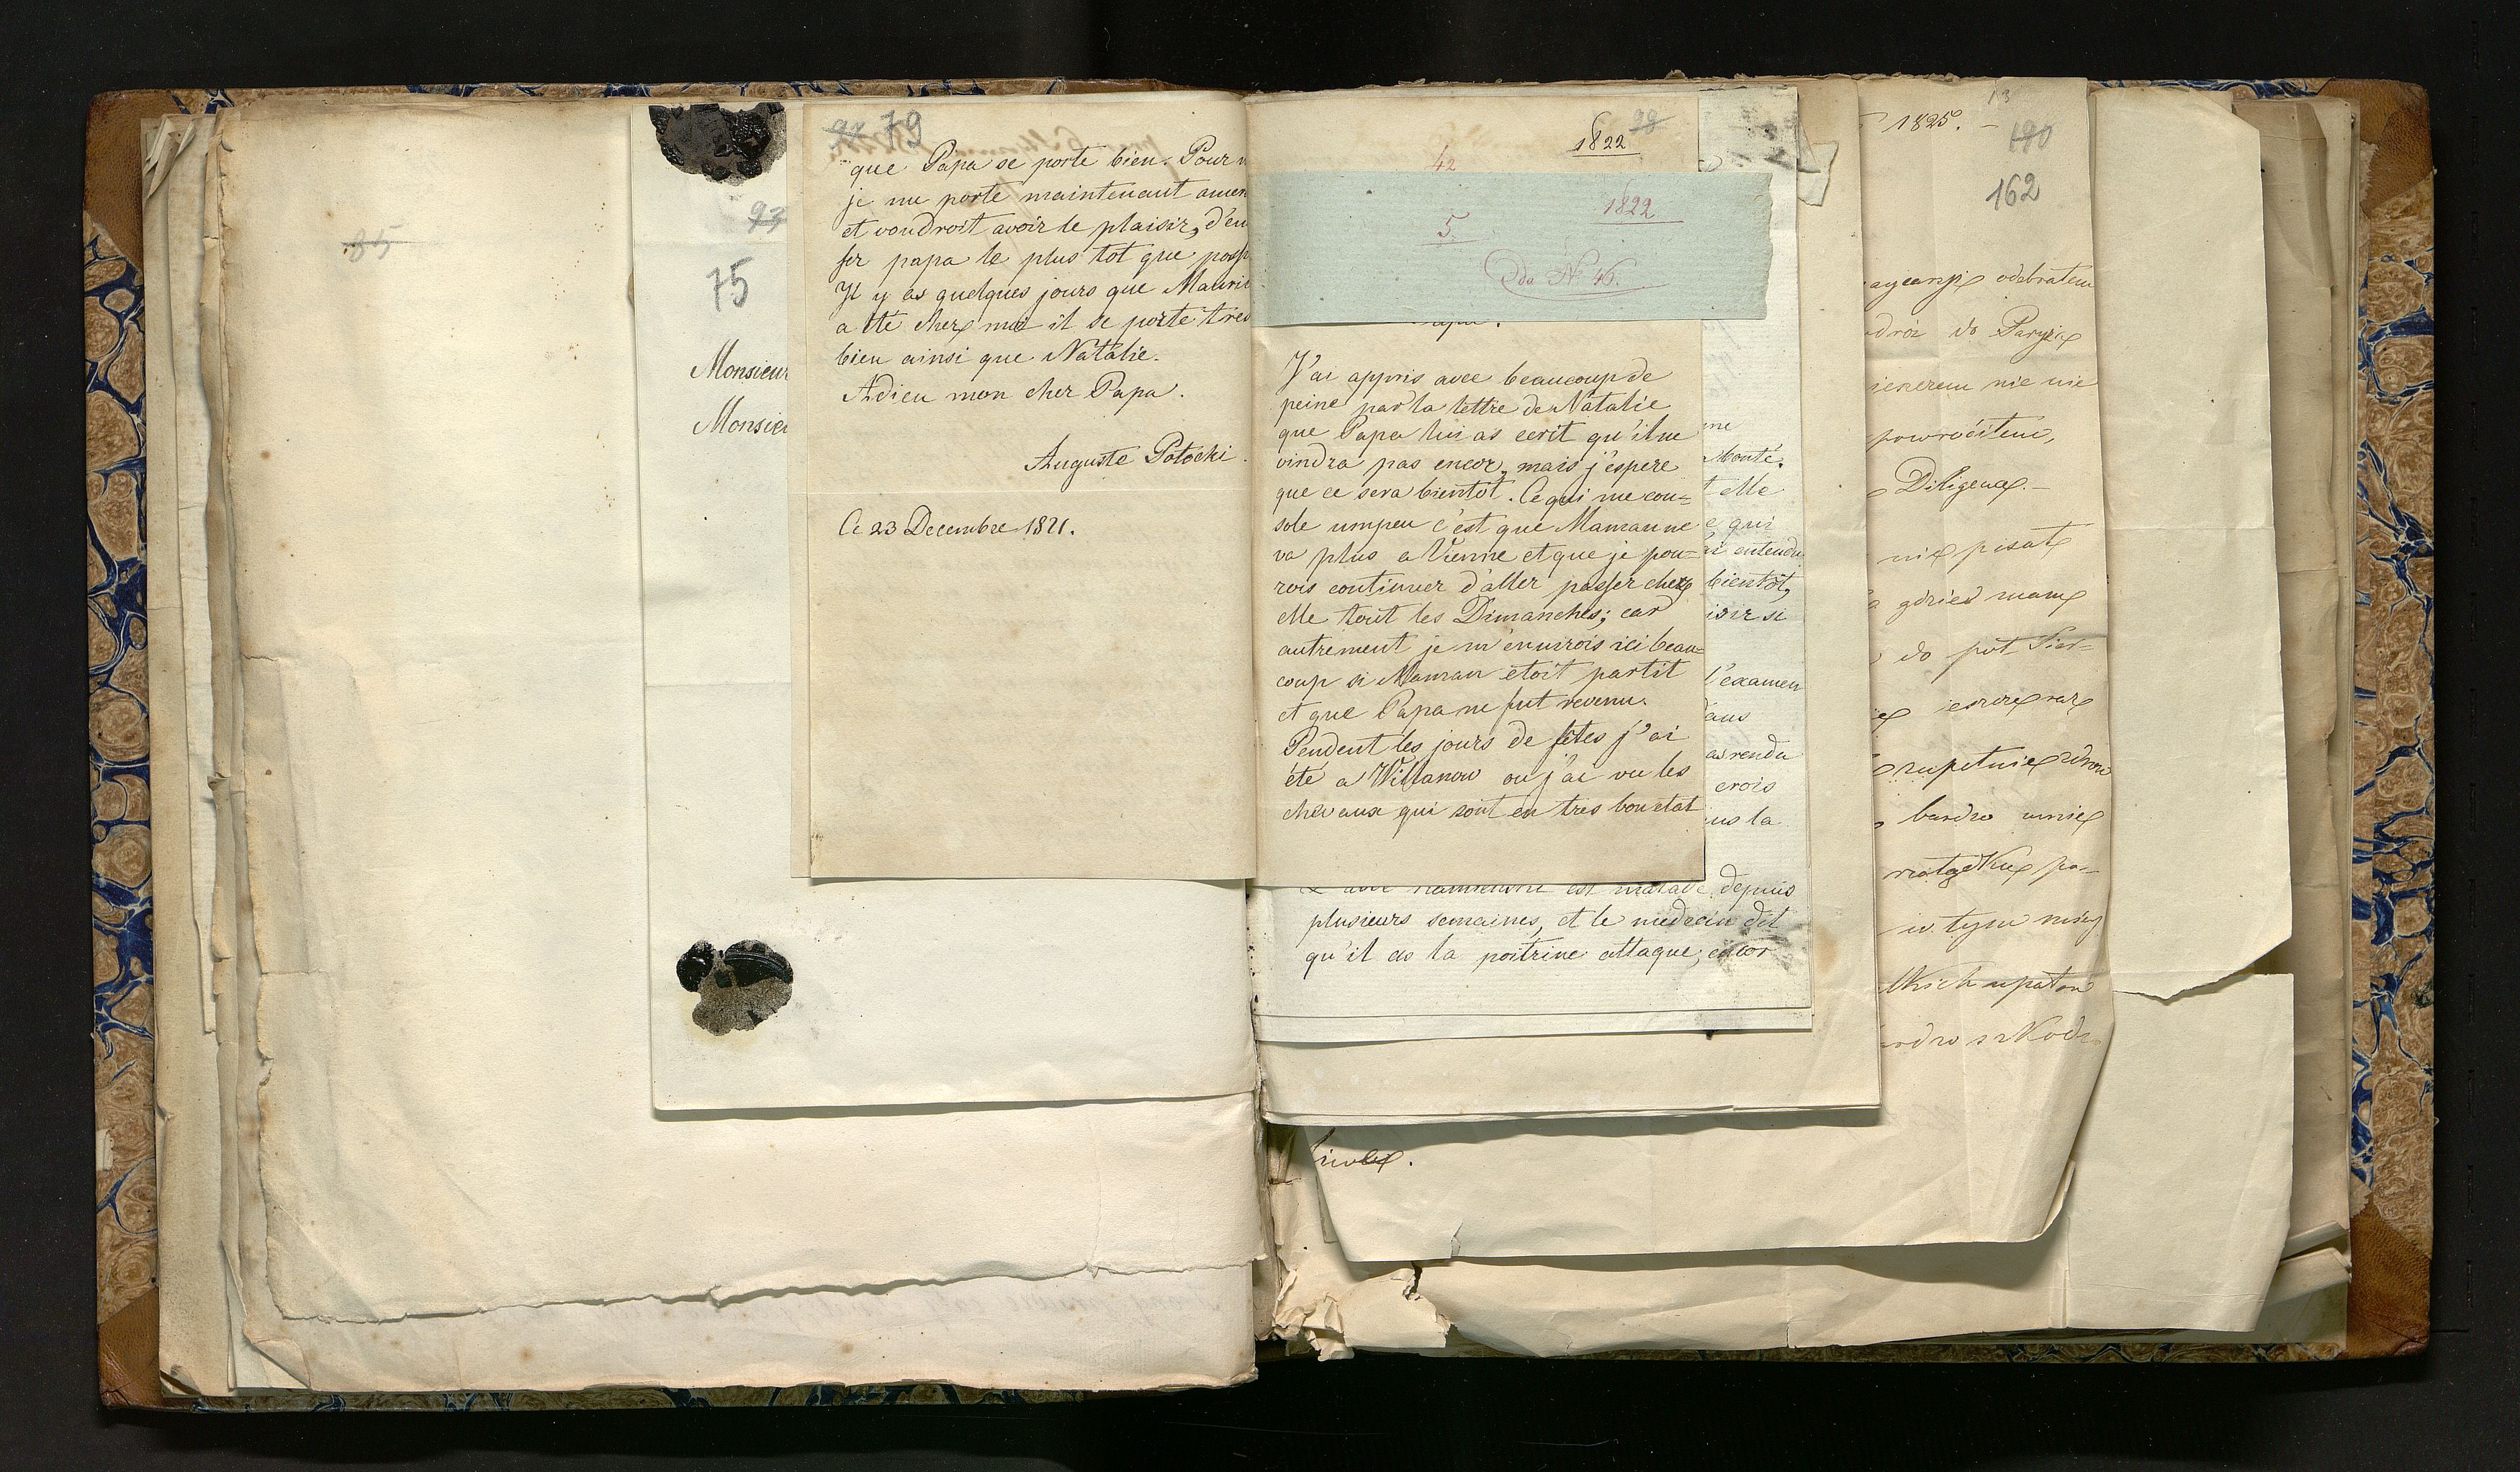 85
93
75
Monsieur
Monsieu
97 79
que Papa se porte bien. Pour
je me porte maintenant
et voudroit avoir le plaisir, d'em
ser papa le plus tot que poss
Il y as quelques jours que Mauri
a ete chez moi il se porte tres
bien ainsi que Natalie.
Adieu mon cher Papa.
Auguste Potocki.
Ce 23 Decembre 1821.
98
1822
42
1822
5.
do N. 46.
J'ai appris avec beaucoup de
peine par la lettre de Natalie
que Papa lui as ecrit qu'il ne
vindra pas encor, mais j'espere
que ce sera bientot. Ce qui me con=
sole umpeu c'est que Maman ne
va plus a Vienne et que je pou=
rois continuer d'aller passer chez
elle tout les Dimanches; car
autrement je m'ennuirois ici beau=
coup si Maman étoit partit
et que Papa ne fut revenu.
Pendent les jours de fêtes j'ai
été a Willanow ou j'ai vu les
chevaux qui sont en tres bon etat
me
bonté.
t elle
e qui
ai entendu
bientôt,
isir si
l'examen
ans
as rendu
erois
us la
est malade depuis
plusieurs semaines, et le medecin dit
qu'il as la poitrine attaque; encor
1825. –
13
190
162
odebrałem
do Paryża
nie nie
powróciłem,
Diligence. –
nie pisał
gdzieś mamę
do
jeszcze raz
bardzo mnie
po=
w tym